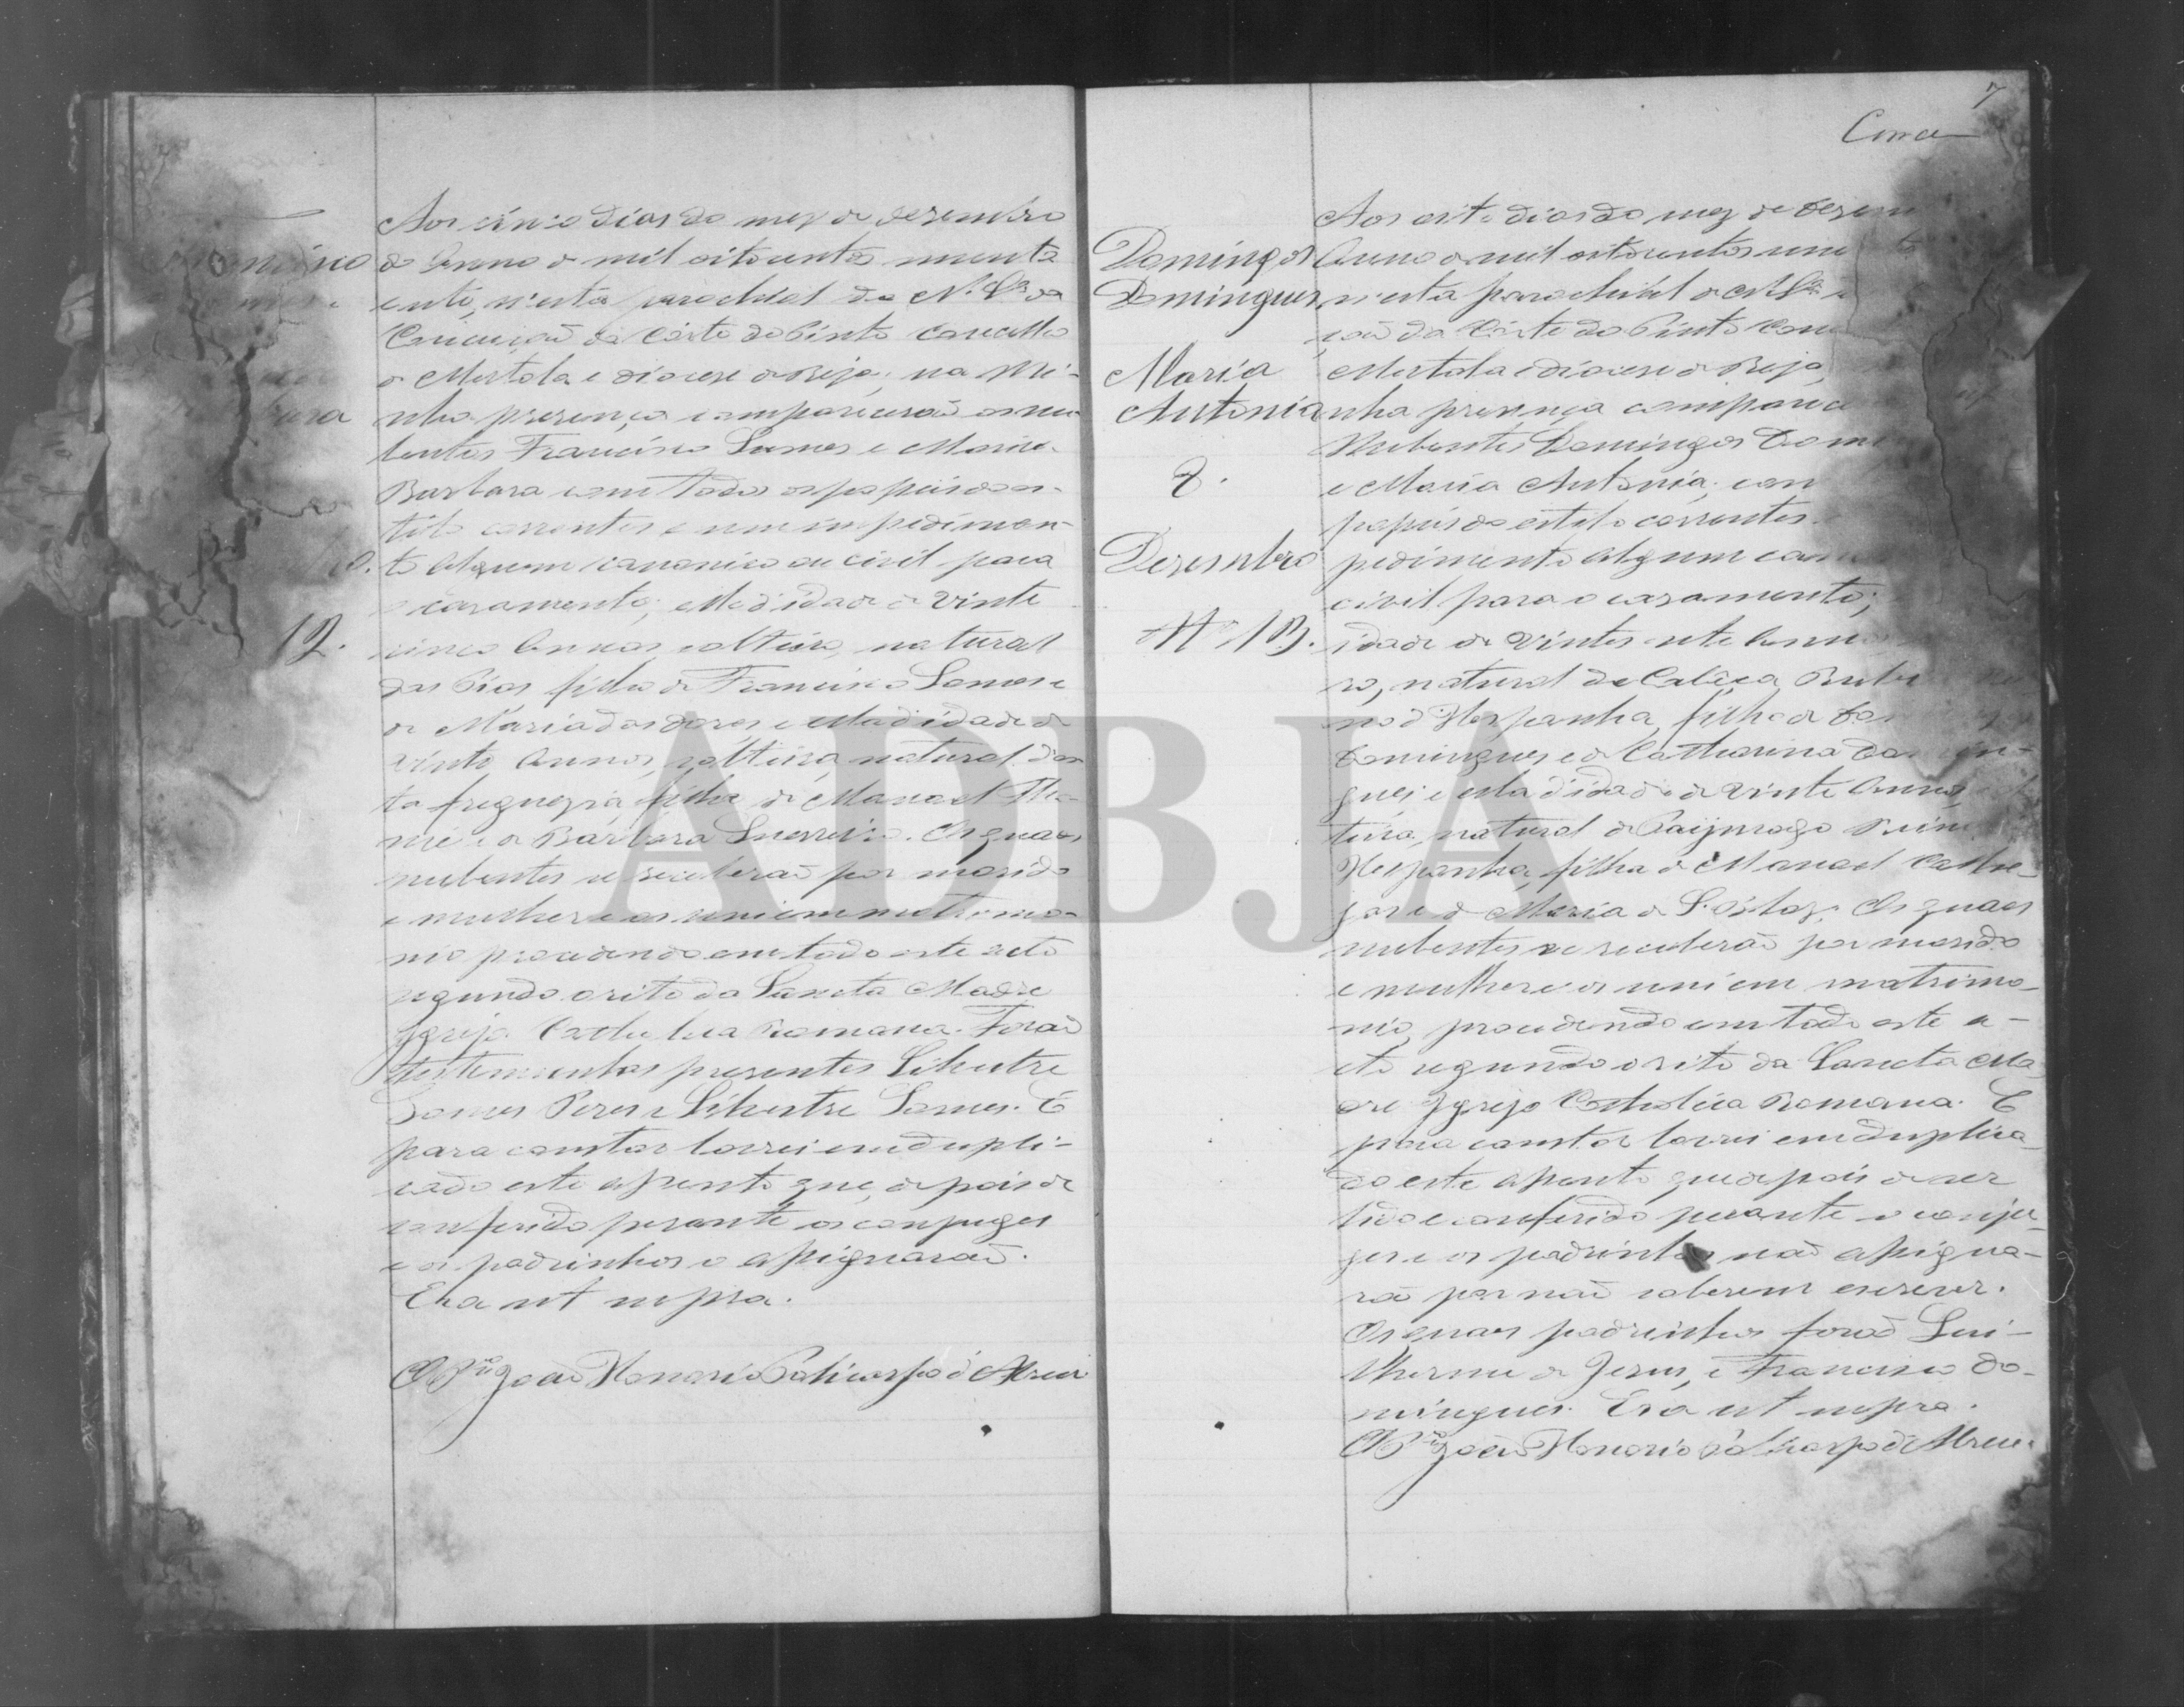 Aos cinco dias do mez de dezembro
do Anno de mil oitocentos noventa
e sete, n'esta parochial de N. Sra. da
Conceição da Corte do Pinto concelho
de Mertola e diocese de Beja, na mi-
nha presença comparecerão os nu-
bentes Francisco Gomes e Maria
Barbara com todos os papeis do es-
tilo correntes e sem impedimen-
to algum canonico ou civil para
o casamento; elle d'idade de vinte
cinco Annos solteiro, natural
das Pias filho de Francisco Gomes e
de Maria das Dores, e ella d'idade de
vinte Annos, solteira, natural des-
ta freguezia, filha de Manoel Tho-
mé e de Barbara Guerreiro. Os quaes
nubentes se receberão por marido
e mulher e os uni em matrimo-
nio procedendo em todo este acto
segundo o rito da Sancta Madre
Igreja Catholica Romana. Forão
testemunhas presentes Silvestre
Gomes Peres e Silvestre Gomes. E
para constar lavrei em dupli-
cado este assento que, depois de
conferido perante os conjuges
e os padrinhos o assignarão.
Era ut supra.
O Pro João Honorio Policarpo d'Abreu
12.
7
Domingos
Domingues
Maria
Antonia
8.
Dezembro
No 13.
Aos oito dias do mez de dezem
Anno de mil oitocentos nove
n'esta parochial de N. Sra.
ção da Corte do Pinto conc
Mertola e diocese de Beja,
nha presença comparece
Nubentes Domingos Dom
e Maria Antonia, com
papeis do estylo correntes
pedimento algum can
civil para o casamento;
idade de vinte e sete Anno
ro, natural de Cabeça Rube
no d'Hespanha, filho de Do
Domingues e de Catharina Domin-
gues e ella d'idade de vinte Annos,
teira, natural de Paijmogo Rein
Hespanha, filha de Manoel
e de Maria de Os quaes
nubentes se receberão por marido
e mulher e os uni em matrimo-
nio, procedendo em todo este a-
cto segundo o rito da Sancta Ma
dre Igreja Catholica Romana. E
para constar lavrei em duplica
do este assento que depois de ser
lido e conferido perante os conju-
ges e os padrinhos não assigna-
rão por não saberem escrever.
Os quaes padrinhos forão Gui-
lherme de Jesus, e Francisco Do-
mingues. Era ut supra.
O Pro João Honorio Policarpo d'Abreu.